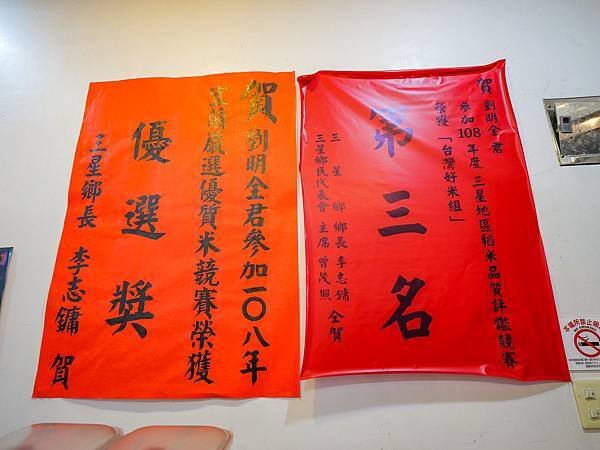 賀劉明全君參加一〇八年
宜蘭嚴選優質米競賽榮獲
優選獎
三星鄉長 李志鏞 賀
賀 劉明全君
參加108年度 三星地區稻米品質評鑑競賽
榮獲「台灣好米組」
第三名
三星鄉鄉長 李志鏞
三星鄉民代表會 主席 曾茂照
仝賀
本場所禁止吸